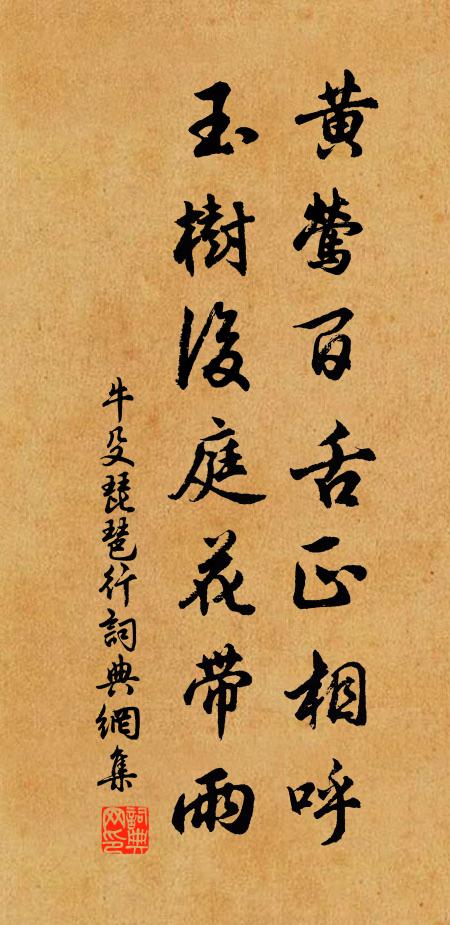 黄莺百舌正相呼
玉樹後庭花带雨
牛殳琵琶行詞典網集
詞典网印